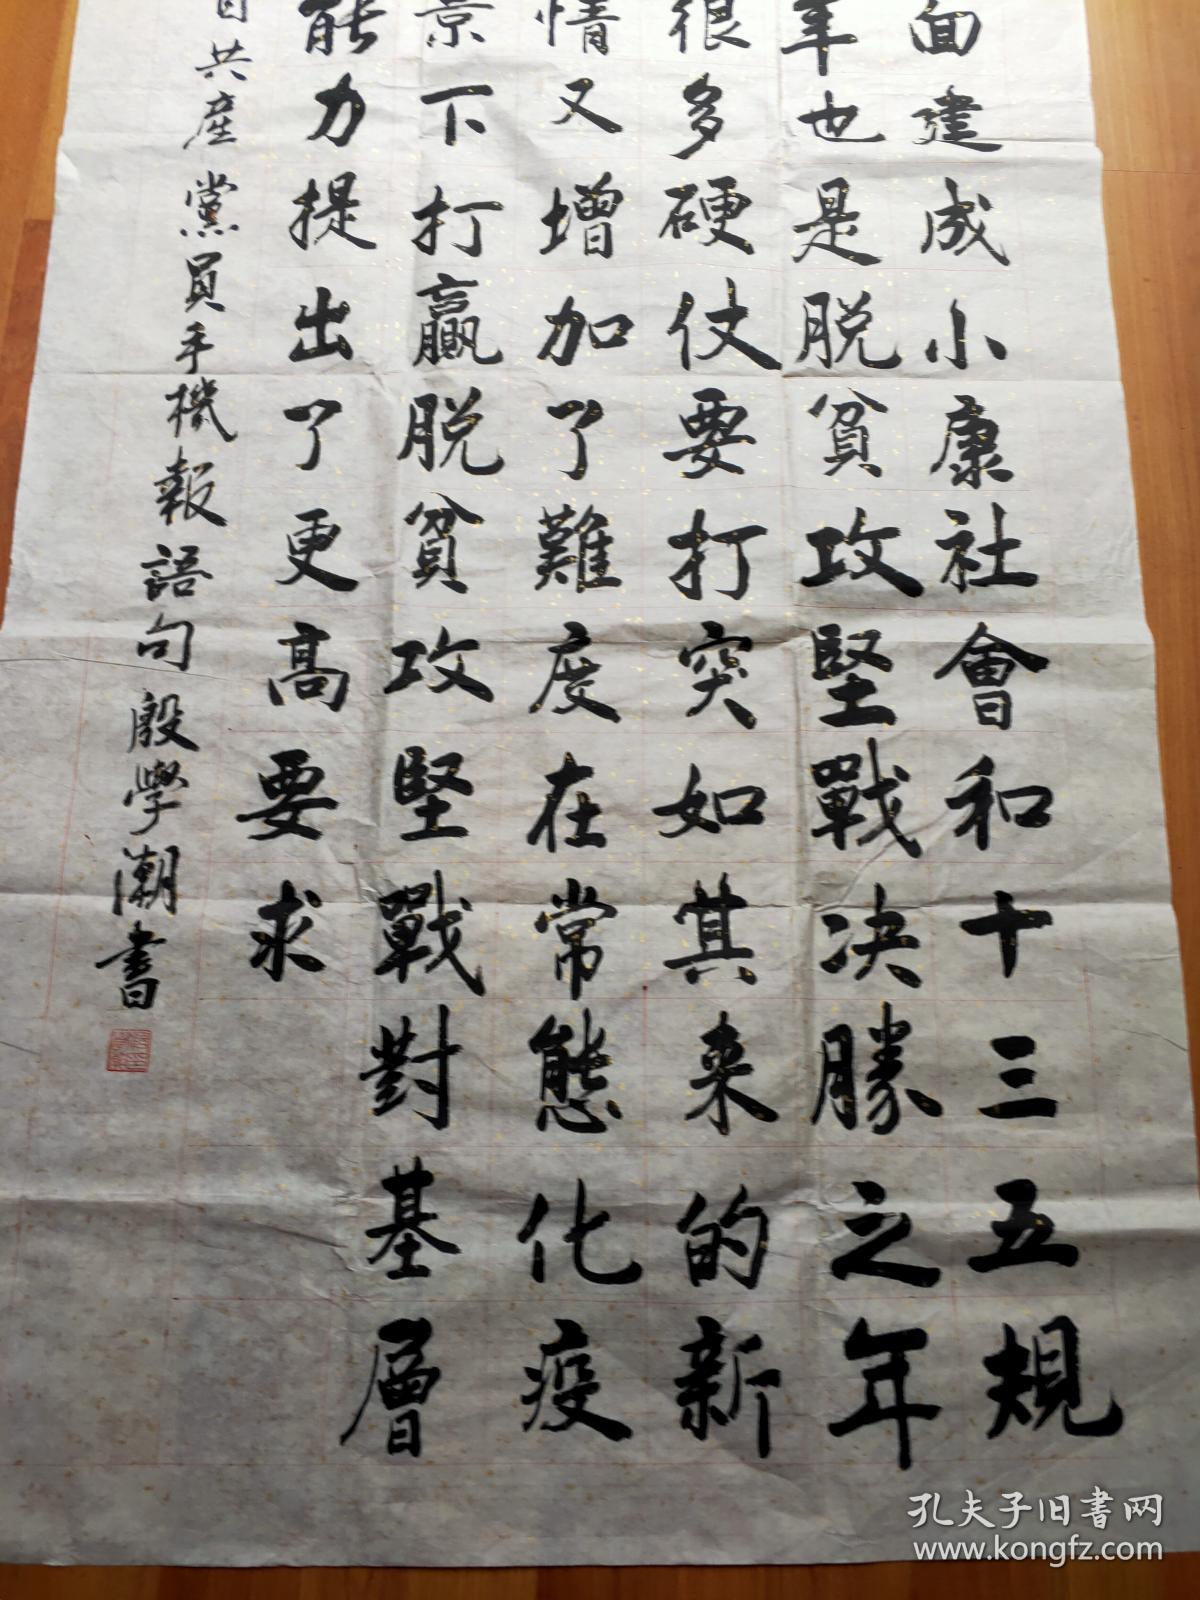 面建成小康社會和十三五規
年也是脱貧攻堅戰决勝之年
很多硬仗要打突如其来的新
情又增加了難度在常態化疫
景下打贏脱貧攻堅戰對基層
能力提出了更高要求
日共産黨員手機報語句殷學潮書
孔夫子旧书网
www.kongfz.com